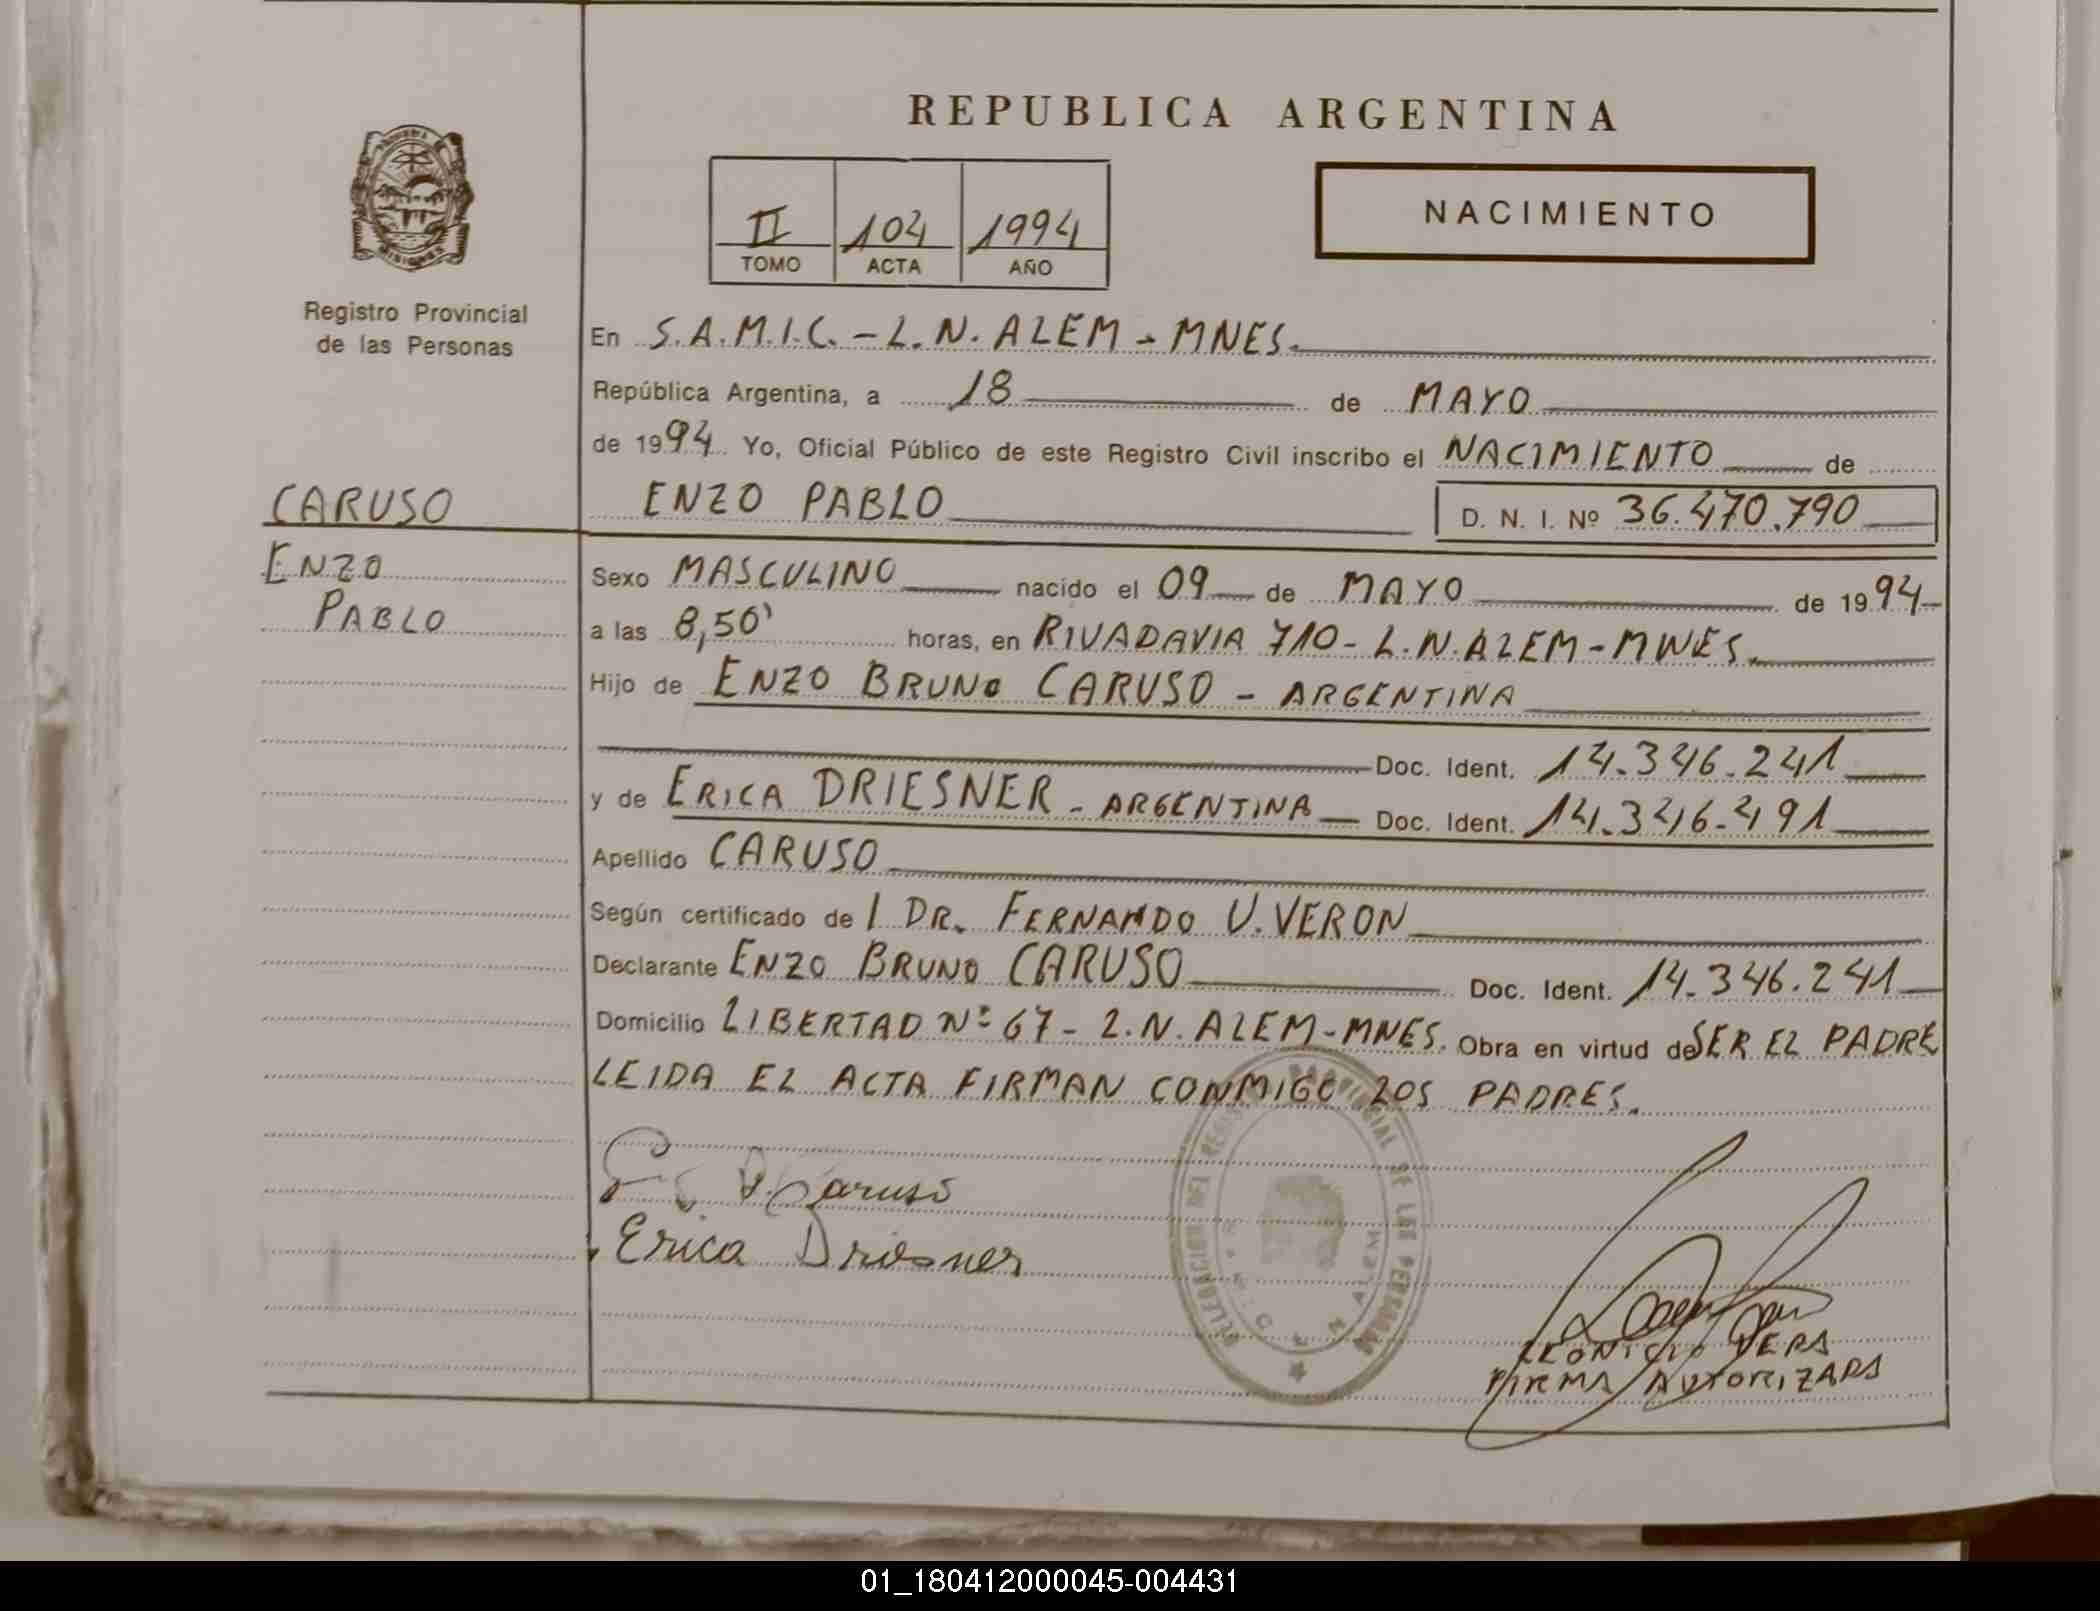 REPUBLICA ARGENTINA
II 104 1994
TOMO ACTA AÑO
NACIMIENTO
MISIONES
Registro Provincial
de las Personas
En S.A.M.I.C. - L.N. ALEM - MNES.
República Argentina, a 18 de MAYO
de 1994 Yo, Oficial Público de este Registro Civil inscribo el NACIMIENTO de
CARUSO
ENZO PABLO D. N. I. Nº 36.470.790
ENZO
PABLO
Sexo MASCULINO nacido el 09 de MAYO de 1994
a las 8,50' horas, en RIVADAVIA 710 - L.N. ALEM - MNES.
Hijo de ENZO BRUNO CARUSO - ARGENTINA
Doc. Ident. 14.346.241
y de ERICA DRIESNER - ARGENTINA Doc. Ident. 14.346.491
Apellido CARUSO
Según certificado de l DR. FERNANDO U. VERON
Declarante ENZO BRUNO CARUSO Doc. Ident. 14.346.241
Domicilio LIBERTAD Nº 67 - L.N. ALEM - MNES. Obra en virtud de SER EL PADRE
LEIDA EL ACTA FIRMAN CONMIGO LOS PADRES.
E B. Caruso
Erica Driesner
DELEGACION DEL REGISTRO PROVINCIAL DE LAS PERSONAS
ALEM
VERA
FIRMA AUTORIZADA
01_180412000045-004431